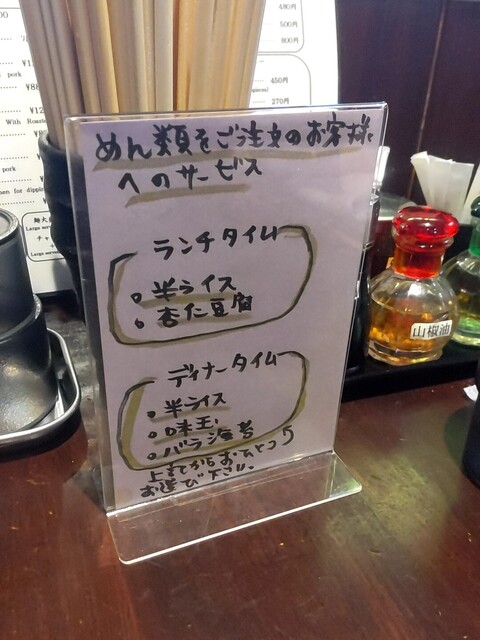 めん類をご注文のお客様
へのサービス
ランチタイム
。半ライス
。杏仁豆腐
ディナータイム
。半ライス
。味玉
。バラ海苔
上記からおひとつ
お選び下さい。
山椒油
480円
500円
800円
450円
270円
pork
With Roaste